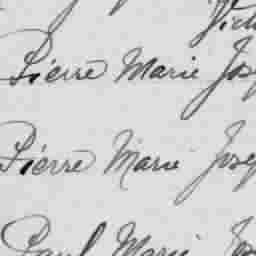 Pierre Marie Jos
Pierre Marie Josep
Paul Marie Jos